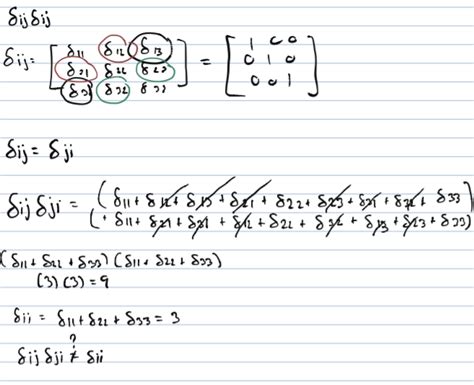 δij δij
δij = [ δ11 δ12 δ13
δ21 δ22 δ23
δ31 δ32 δ33 ] = [ 1 0 0
0 1 0
0 0 1 ]
δij = δji
δij δji = (δ11 + δ12 + δ13 + δ21 + δ22 + δ23 + δ31 + δ32 + δ33)
(δ11 + δ21 + δ31 + δ12 + δ22 + δ32 + δ13 + δ23 + δ33)
(δ11 + δ22 + δ33) (δ11 + δ22 + δ33)
(3) (3) = 9
δii = δ11 + δ22 + δ33 = 3
?
δij δji ≠ δii